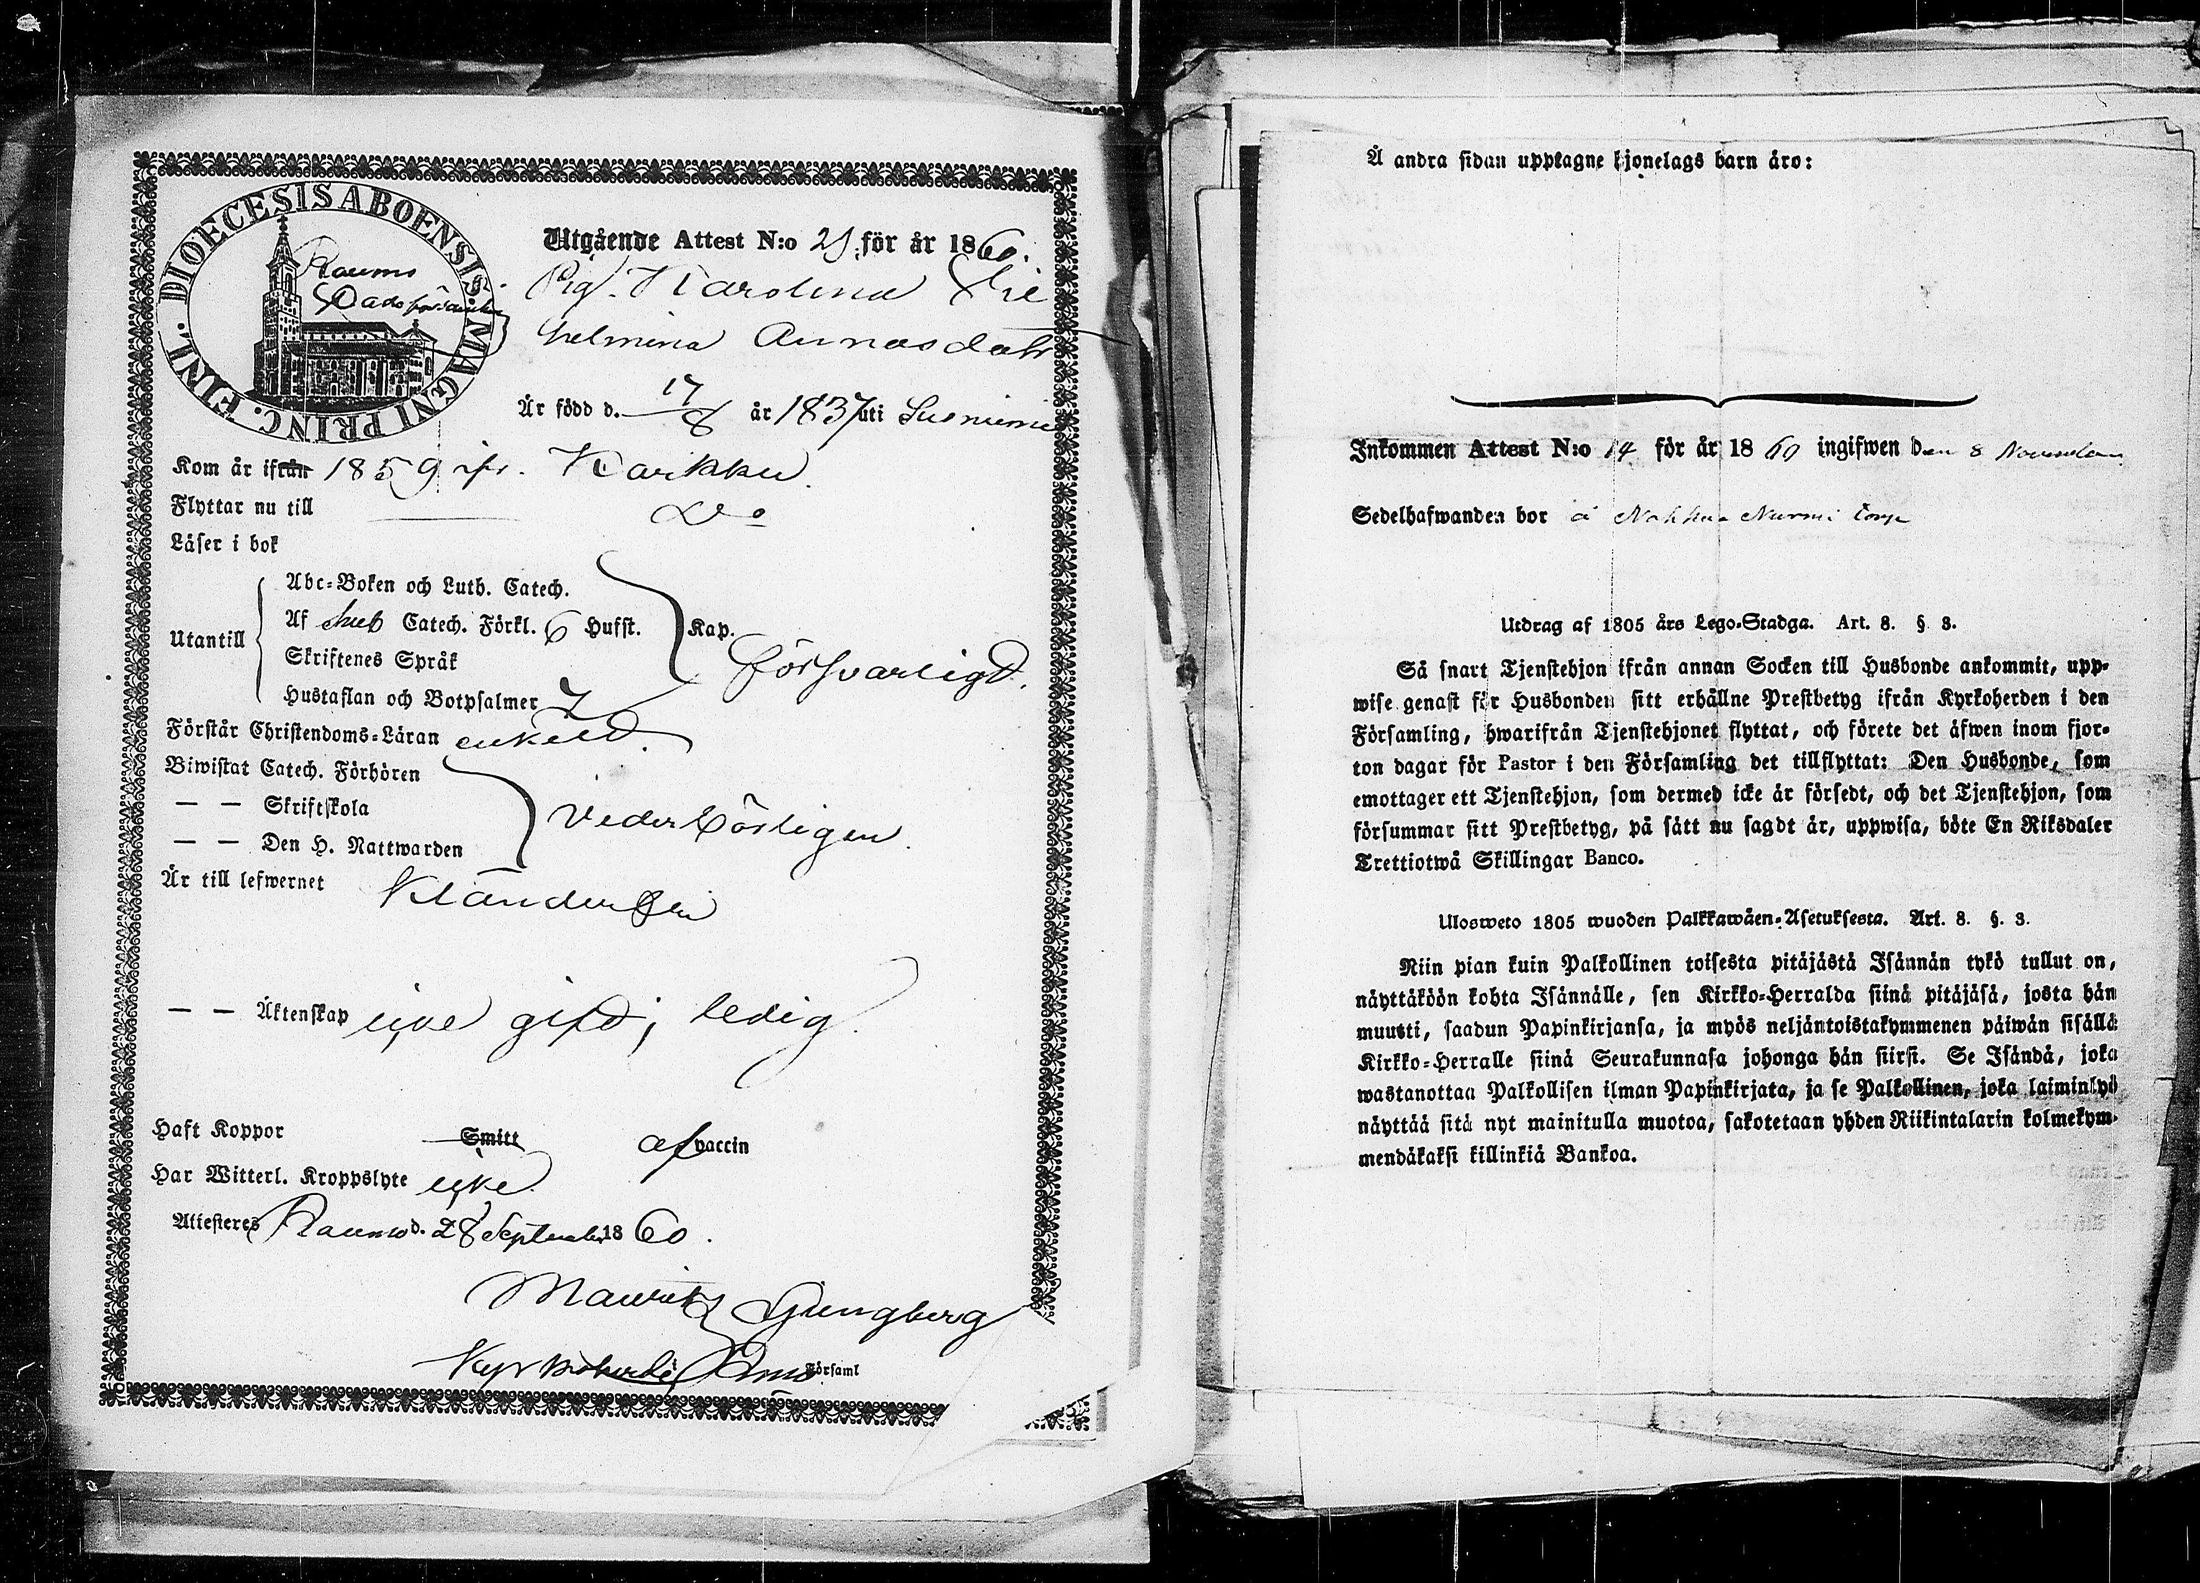 DIOECESIS ABOENSIS. MAGNI PRINC. FINL.
Raumo
Stadsförsamling
Utgående Attest N:o 21 för år 1860.
Pig. Karolina Vil
helmina Annasdotr
Är född d. 17/8 år 1837 uti Suoniemi
Kom år ifrån 1859 ifr. Karkku.
Flyttar nu till Do
Läser i bok
Utantill
Abc-Boken och Luth. Catech.
Af Sveb Catech. Förkl. 6 Hufst. Kap.
Skriftenes Språk
försvarligt.
Hustaflan och Botpsalmer 7
Förstår Christendoms-Läran enkelt.
Biwistat Catech. Förhören
— — Skriftskola
vederbörligen.
— — Den H. Nattwarden
Är till lefwernet Klanderfri
— — Äktenskap icke gift; ledig.
Haft Koppor Smitt af vaccin
Har Witterl. Kroppslyte icke.
Attesteres Raumo d. 28 September 1860.
Mauritz Ljungberg
Kyrkoherde i Rmo Församl
Å andra sidan upptagne hjonelags barn äro:
Inkommen Attest N:o 14 för år 1860 ingifwen den 8 November
Sedelhafwanden bor å Nohkua Nurmi torp
Utdrag af 1805 års Lego-Stadga. Art. 8. § 3.
Så snart Tjenstehjon ifrån annan Socken till Husbonde ankommit, upp-
wise genast för Husbonden sitt erhållne Prestbetyg ifrån Kyrkoherden i den
Församling, hwarifrån Tjenstehjonet flyttat, och förete det äfwen inom fjor-
ton dagar för Pastor i den Församling det tillflyttat: Den Husbonde, som
emottager ett Tjenstehjon, som dermed icke är försedt, och det Tjenstehjon, som
försummar sitt Prestbetyg, på sätt nu sagdt är, uppwisa, böte En Riksdaler
Trettiotwå Skillingar Banco.
Ulosweto 1805 wuoden Palkkawäen-Asetuksesta. Art. 8. §. 3.
Niin pian kuin Palkollinen toisesta pitäjästä Isännän tykö tullut on,
näyttäköön kohta Isännälle, sen Kirkko-Herralda siinä pitäjäsä, josta hän
muutti, saadun Papinkirjansa, ja myös neljäntoistakymmenen päiwän sisällä
Kirkko-Herralle siinä Seurakunnasa johonga hän siirsi. Se Isändä, joka
wastanottaa Palkollisen ilman Papinkirjata, ja se Palkollinen, joka laiminlyö
näyttää sitä nyt mainitulla muotoa, sakotetaan yhden Riikintalarin kolmekym-
mendäkaksi killinkiä Bankoa.